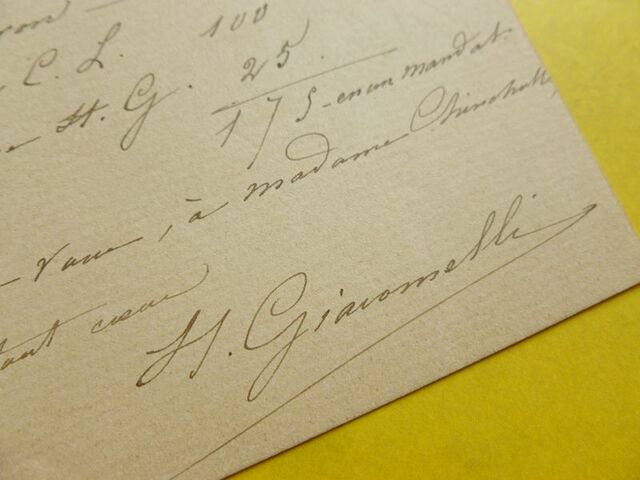 ron
C. L. 100
H. G. 25
175 en un mandat.
vous, à madame
tout cœur
H. Giacomelli